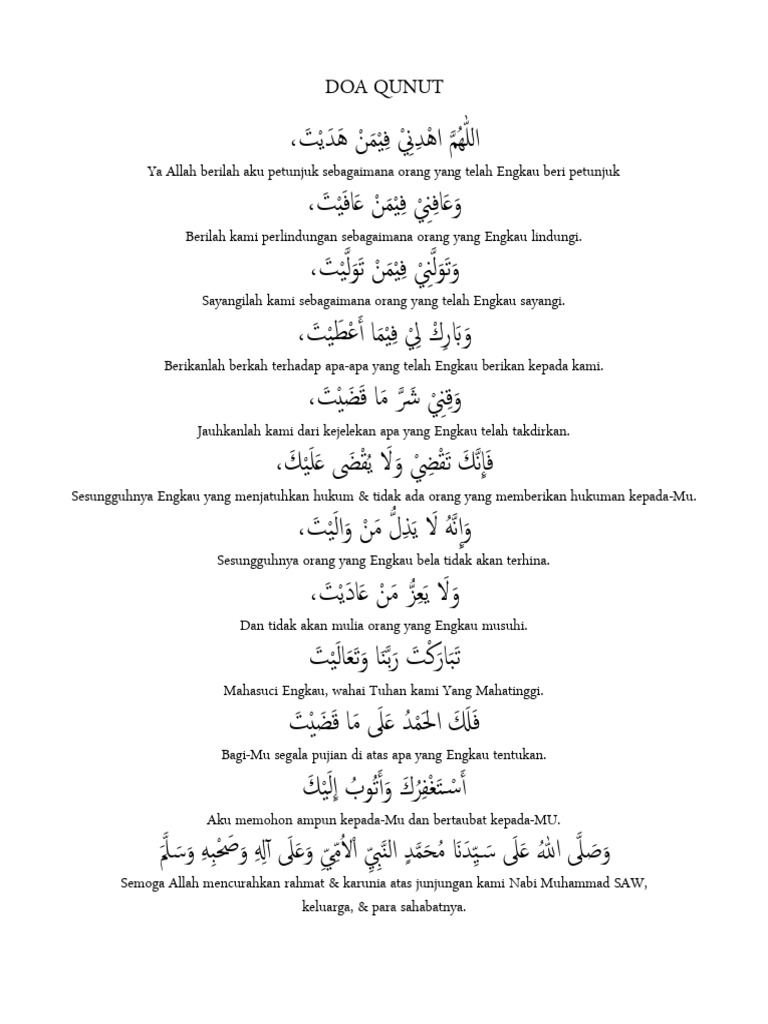 DOA QUNUT
اللّٰهُمَّ اهْدِنِيْ فِيْمَنْ هَدَيْتَ،
Ya Allah berilah aku petunjuk sebagaimana orang yang telah Engkau beri petunjuk
وَعَافِنِيْ فِيْمَنْ عَافَيْتَ،
Berilah kami perlindungan sebagaimana orang yang Engkau lindungi.
وَتَوَلَّنِيْ فِيْمَنْ تَوَلَّيْتَ،
Sayangilah kami sebagaimana orang yang telah Engkau sayangi.
وَبَارِكْ لِيْ فِيْمَا أَعْطَيْتَ،
Berikanlah berkah terhadap apa-apa yang telah Engkau berikan kepada kami.
وَقِنِيْ شَرَّ مَا قَضَيْتَ،
Jauhkanlah kami dari kejelekan apa yang Engkau telah takdirkan.
فَإِنَّكَ تَقْضِيْ وَلَا يُقْضَى عَلَيْكَ،
Sesungguhnya Engkau yang menjatuhkan hukum & tidak ada orang yang memberikan hukuman kepada-Mu.
وَإِنَّهُ لَا يَذِلُّ مَنْ وَالَيْتَ،
Sesungguhnya orang yang Engkau bela tidak akan terhina.
وَلَا يَعِزُّ مَنْ عَادَيْتَ،
Dan tidak akan mulia orang yang Engkau musuhi.
تَبَارَكْتَ رَبَّنَا وَتَعَالَيْتَ
Mahasuci Engkau, wahai Tuhan kami Yang Mahatinggi.
فَلَكَ الْحَمْدُ عَلَى مَا قَضَيْتَ
Bagi-Mu segala pujian di atas apa yang Engkau tentukan.
أَسْتَغْفِرُكَ وَأَتُوبُ إِلَيْكَ
Aku memohon ampun kepada-Mu dan bertaubat kepada-MU.
وَصَلَّى اللهُ عَلَى سَيِّدَنَا مُحَمَّدٍ النَّبِيِّ ٱلاُمِّيِّ وَعَلَى آلِهِ وَصَحْبِهِ وَسَلَّمَ
Semoga Allah mencurahkan rahmat & karunia atas junjungan kami Nabi Muhammad SAW,
keluarga, & para sahabatnya.